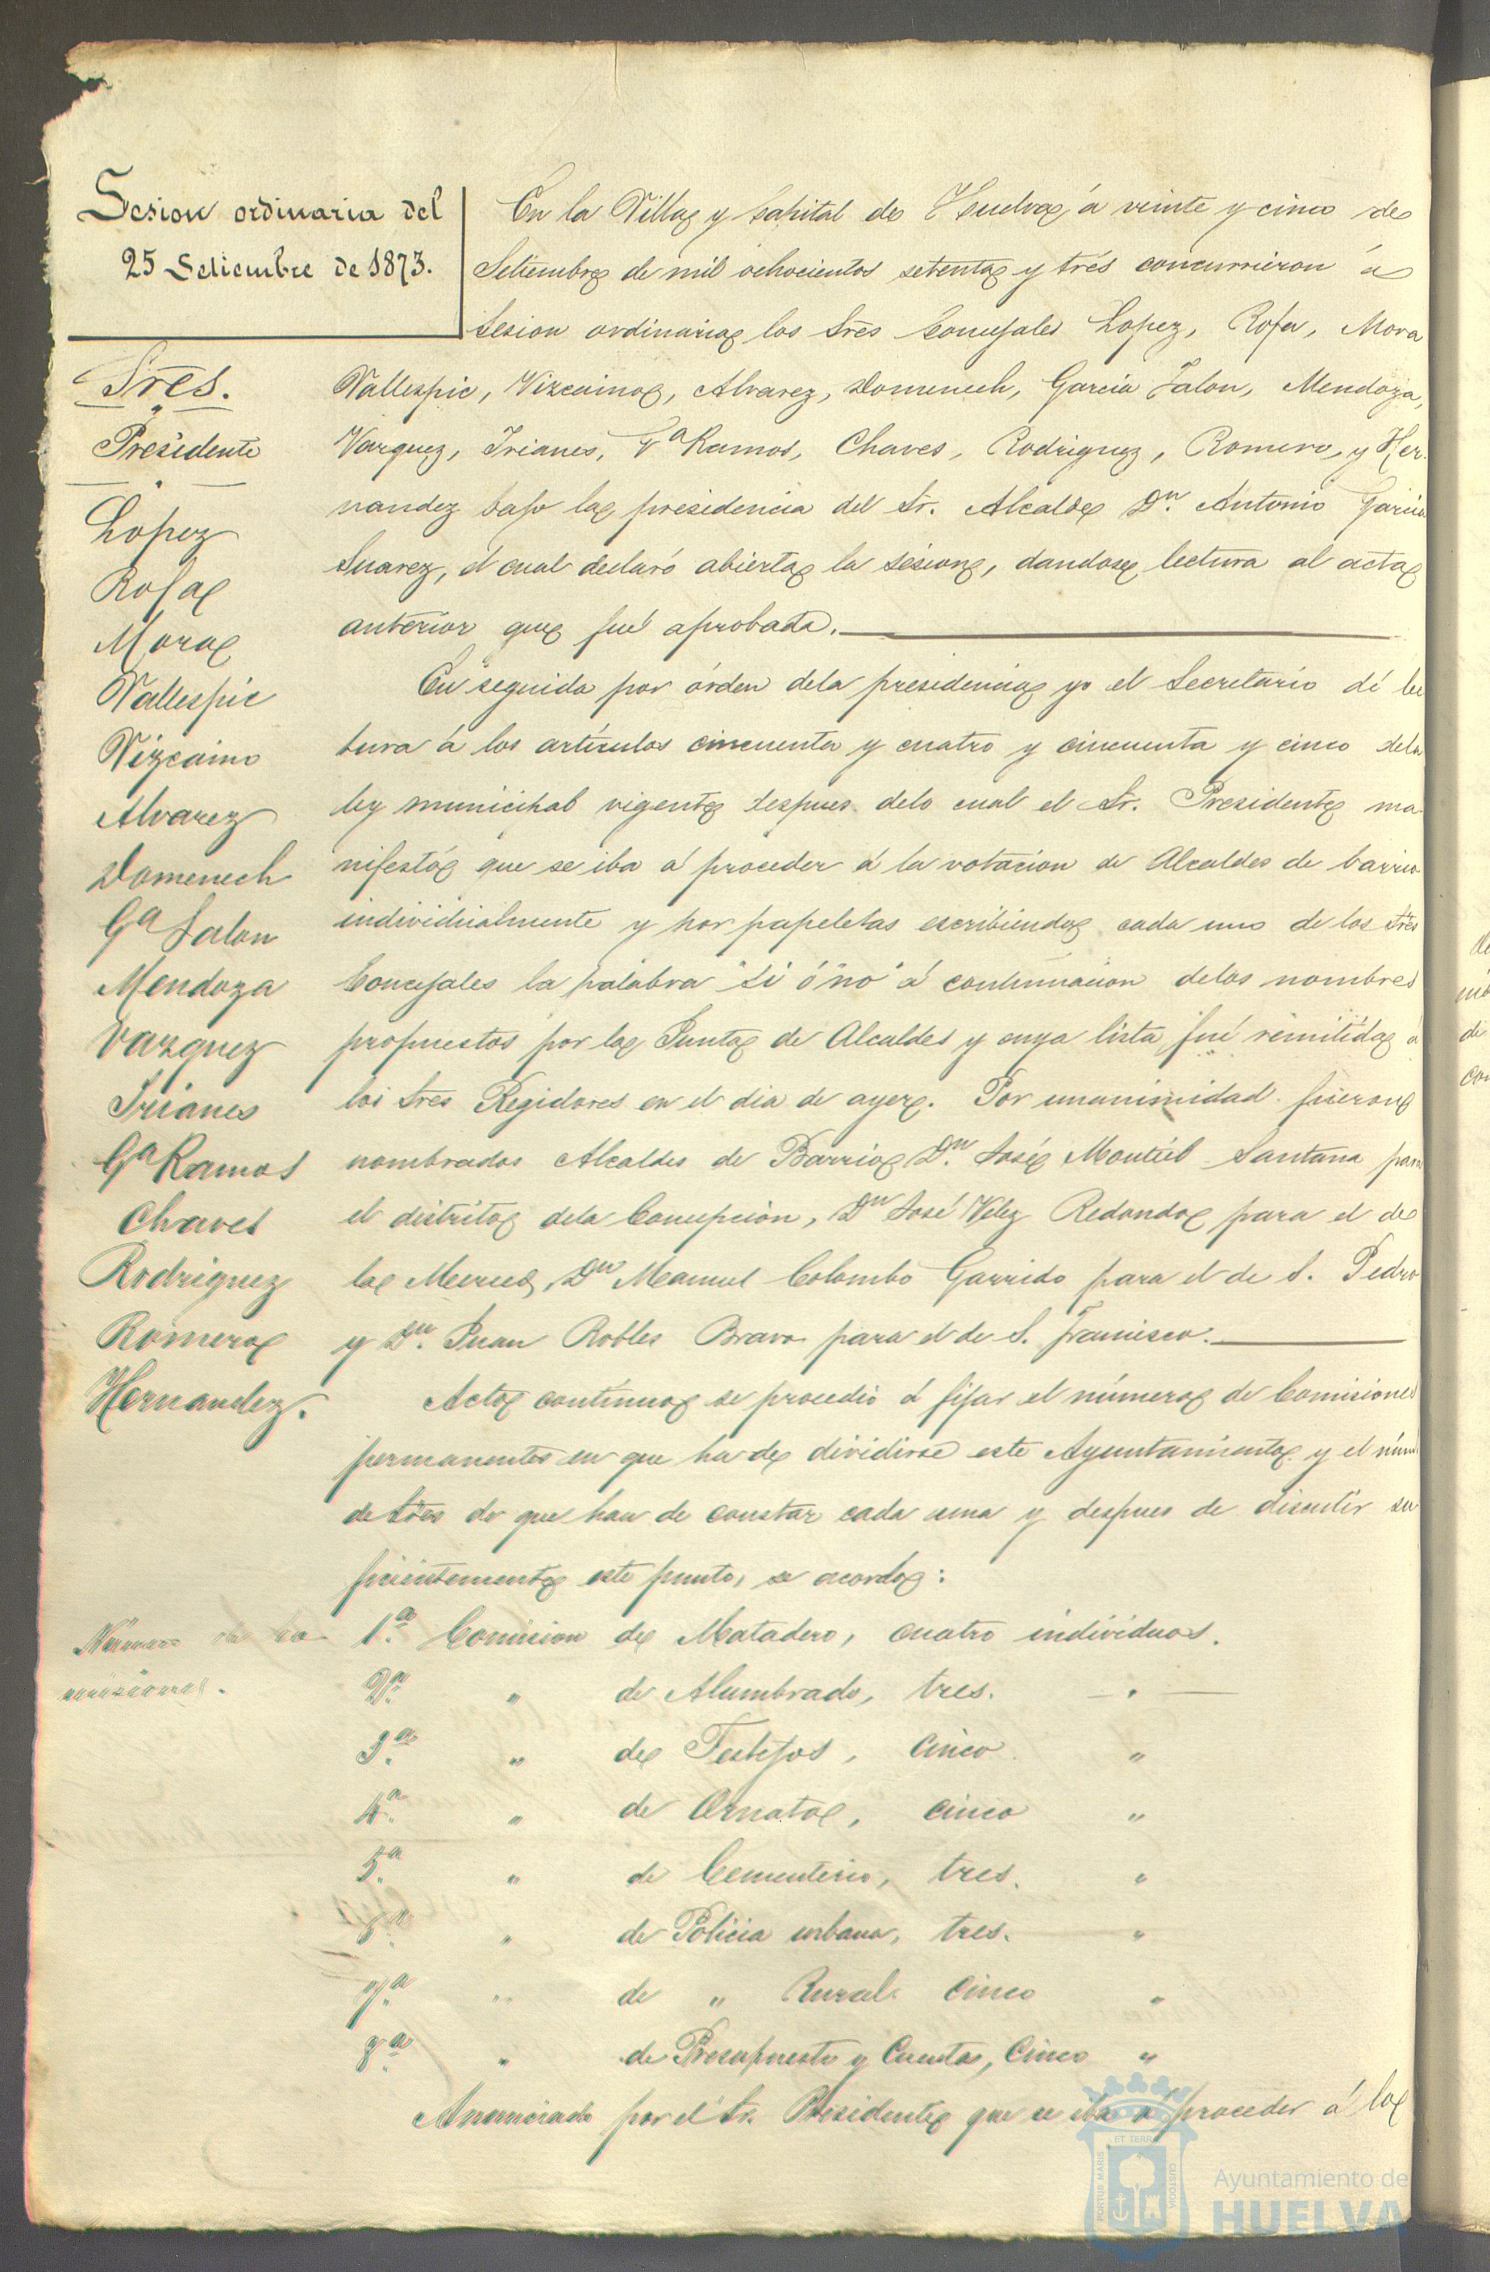 Sesion ordinaria del
25 Setiembre de 1873.
Sres.
Presidente
Lopez
Rofa
Mora
Vallespic
Vizcaino
Alvarez
Domenech
Gª Jalon
Mendoza
Vazquez
Trianes
Gª Ramos
Chaves
Rodriguez
Romero
Hernandez.
En la Villa y Capital de Huelva á veinte y cinco de
Setiembre de mil ochocientos setenta y trés concurrieron á
Sesion ordinaria los Sres Concejales Lopez, Rofa, Mora
Vallespic, Vizcaino, Alvarez, Domenech, Garcia Jalon, Mendoza,
Vazquez, Trianes, Gª Ramos, Chaves, Rodriguez, Romero, y Her-
nandez bajo la presidencia del Sr. Alcalde Dn. Antonio Garcia
Suarez, el cual declaró abierta la sesion, dandose lectura al acta
anterior que fué aprobada.
En seguida por órden dela presidencia yo el Secretario dí lec
tura á los artículos cincuenta y cuatro y cincuenta y cinco dela
ley municipal vigente despues delo cual el Sr. Presidente ma-
nifestó que se iba á proceder á la votacion de Alcaldes de barrio
individualmente y por papeletas escribiendo cada uno de los Sres
Concejales la palabra "si ó no" á continuacion delos nombres
propuestos por la Junta de Alcaldes y cuya lista fué remitida á
los Sres Regidores en el dia de ayer. Por unanimidad fueron
nombrados Alcaldes de Barrio Dn. José Montiel Santana para
el distrito dela Concepcion, Dn José Velez Redondo para el de
la Merced, Dn Manuel Colombo Garrido para el de S. Pedro
y Dn. Juan Robles Bravo para el de S. Francisco.
Acto contínuo se procedió á fijar el número de Comisiones
permanentes en que ha de dividirse este Ayuntamiento y el núm
de Sres de que han de constar cada una y despues de discutir su
ficientemente este punto, se acordo:
Número de Co
misiones.
1.ª Comision de Matadero, cuatro individuos.
2.ª " de Alumbrado, tres. "
3.ª " de Festejos, cinco "
4.ª " de Ornato, cinco "
5.ª " de Cementerio, tres. "
6.ª " de Policia urbana, tres. "
7.ª " de " Rural. Cinco "
8.ª " de Presupuesto y Cuentas, Cinco "
Anunciado por el Sr. Presidente que se iba á proceder á la
PORTUS MARIS
ET TERRA
CUSTODIA
Ayuntamiento de
HUELVA